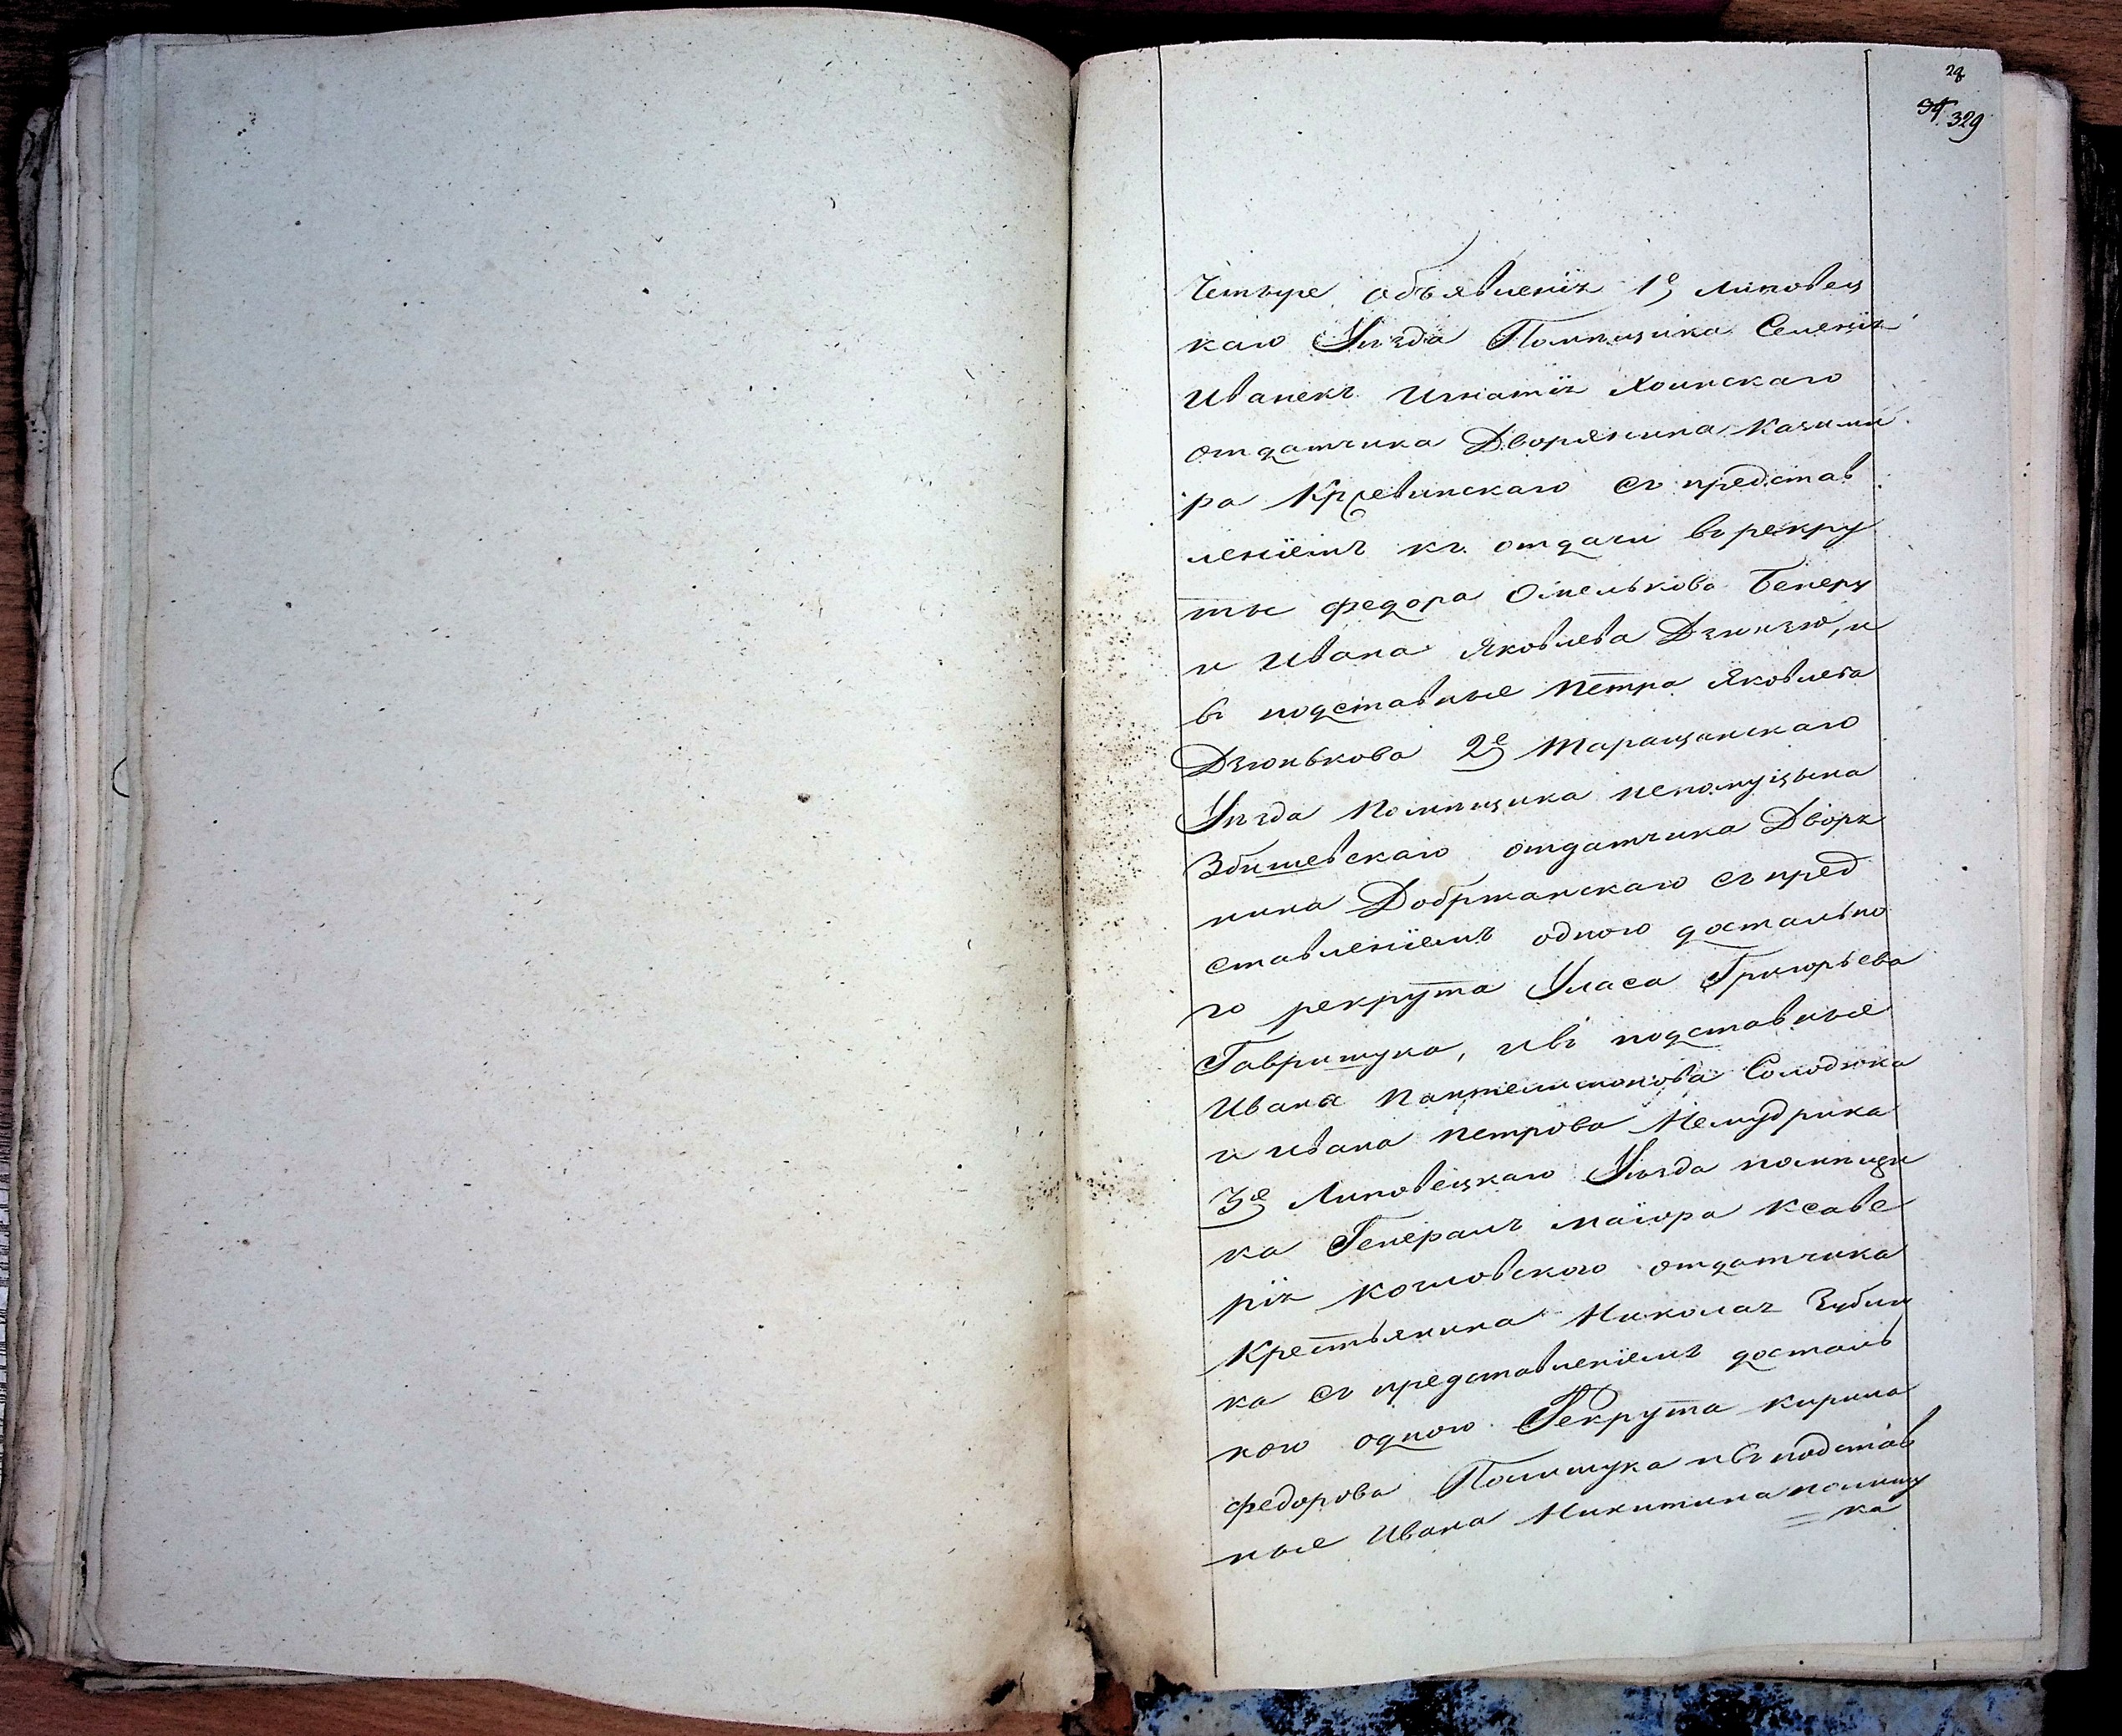 28
34. 329
Четыре объявленія 1е Липовец
каго Уѣзда Помѣщика Селенія
Иванекъ Игнатія Хоинскаго
отдатчика Дворянина Казими
ра с представ
леніемъ къ отдачи в рекру
ты Федора Омелькова
и Ивана Яковлева Дзюнзю, и
въ подставные Петра Яковлева
Дзюнькова 2е Таращанскаго
Уѣзда Помѣщика
Збишевскаго отдатчика Дворя
нина Добржанскаго съ пред
ставленіемъ одного достально
го рекрута Уласа Григорьева
Гавришука, и въ подставные
Ивана Пантелимонова Солодюка
и Ивана Петрова Немудрика
3е Липовецкаго Уѣзда помѣщи
ка Генералъ маіора Ксаве
рія отдатчика
Крестьянина Николая Зубин
ка съ представленіемъ досталь
ного одного Рекрута Кирила
Федорова Полишука и въ подстав
ные Ивана Никитина полишу
= ка